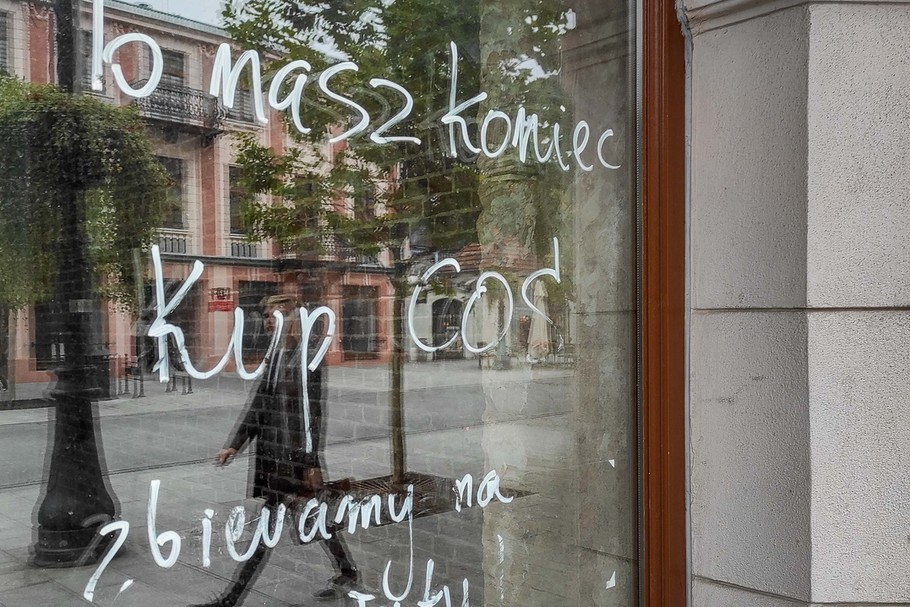 To masz koniec
Kup coś
zbieramy na